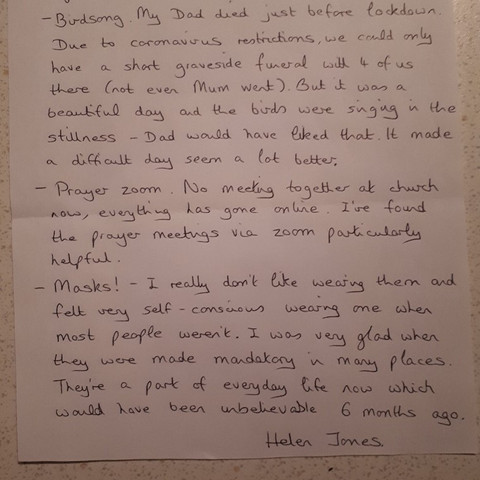 - Birdsong. My Dad died just before lockdown.
Due to coronavirus restrictions, we could only
have a short graveside funeral with 4 of us
there (not even Mum went). But it was a
beautiful day and the birds were singing in the
stillness - Dad would have liked that. It made
a difficult day seem a lot better.
- Prayer zoom. No meeting together at church
now, everything has gone online. I've found
the prayer meetings via zoom particularly
helpful.
- Masks! - I really don't like wearing them and
felt very self-consious wearing one when
most people weren't. I was very glad when
they were made mandatory in many places.
They're a part of everyday life now which
would have been unbelievable 6 months ago.
Helen Jones